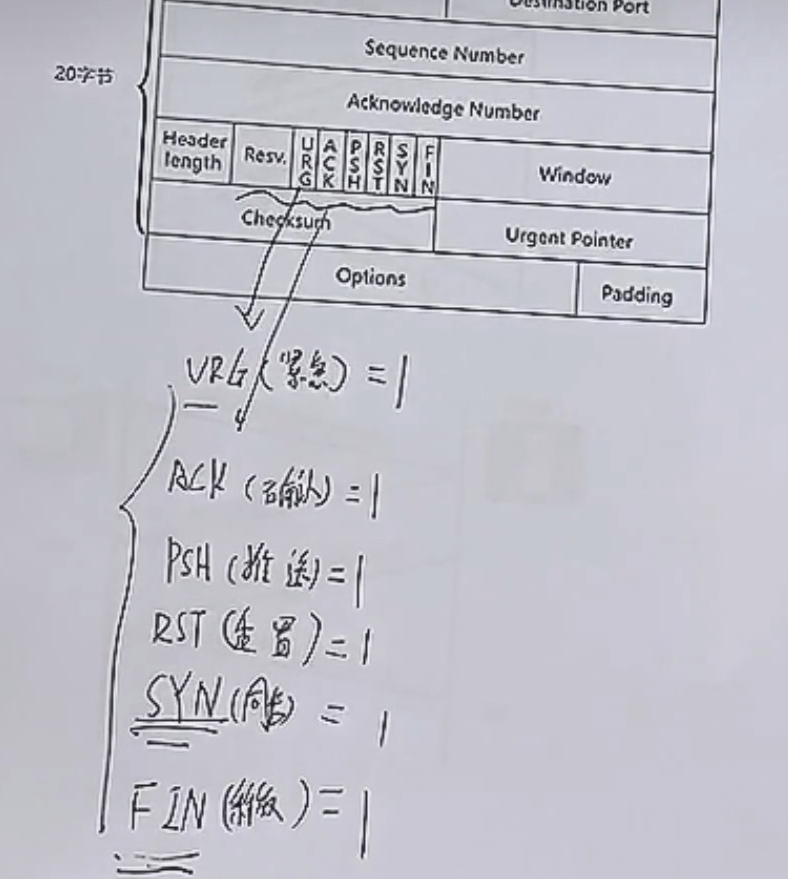 Destination Port
20字节
Sequence Number
Acknowledge Number
Header length Resv. URG ACK PSH RST SYN FIN Window
Checksum Urgent Pointer
Options Padding
URG (紧急) = 1
ACK (确认) = 1
PSH (推送) = 1
RST (重置) = 1
SYN (同步) = 1
FIN (终止) = 1